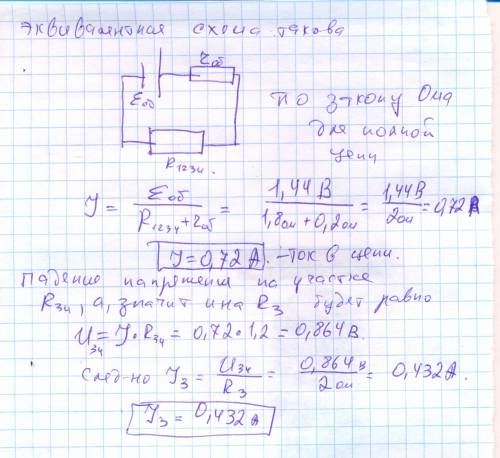 эквивалентная схема такова
εоб
rоб
R1234.
по закону Ома
для полной
цепи
J = εоб / (R1234 + rоб) = 1,44 В / (1,8 ом + 0,2 ом) = 1,44 В / 2 ом = 0,72 А
J = 0,72 А. – ток в цепи.
Падение напряжения на участке
R34, а, значит и на R3 будет равно
U34 = J · R34 = 0,72 · 1,2 = 0,864 В.
след-но J3 = U34 / R3 = 0,864 В / 2 ом = 0,432 А.
J3 = 0,432 А